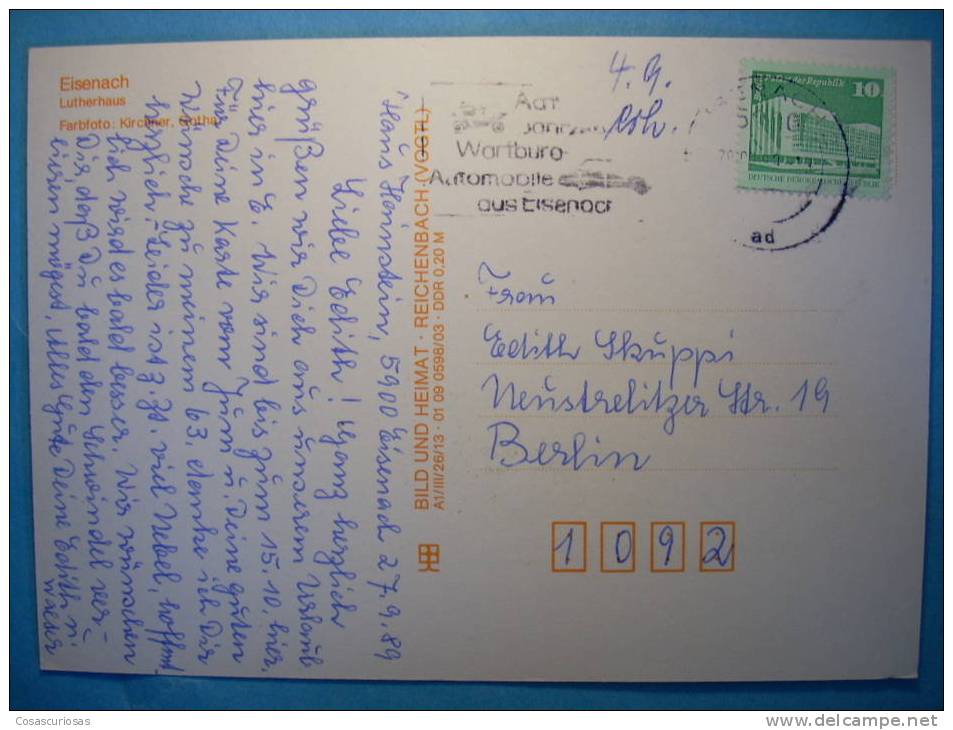 Eisenach
Lutherhaus
Farbfoto: Kirchner, Gotha
4. 9.
10
Palast der Republik
DEUTSCHE DEMOKRATISCHE REPUBLIK
Wartburg-
Automobile
aus Eisenach
ad
Haus Hainstein, 5900 Eisenach 27.9.89
Liebe Edith! Ganz herzlich
grüßen wir Dich aus unserem Urlaub
hier in E. Wir sind bis zum 15.10. hier.
Für Deine Karte vom Juni u. Deine guten
Wünsche zu meinem 63. danke ich Dir
herzlich. Leider ist z. Zt. viel Nebel, hoffent-
lich wird es bald besser. Wir wünschen
Dir, daß Du bald den Schwindel ver-
mögest, Alles Gute Deine Edith u.
BILD UND HEIMAT · REICHENBACH (VOGTL)
A1/III/26/13 · 01 09 0598/03 · DDR 0,20 M
Frau
Edith Skuppi
Neustrelitzer Str. 19
Berlin
1092
Cosascuriosas
www.delcampe.net